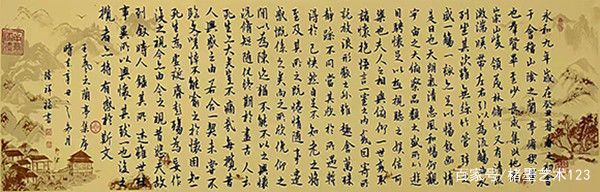 永和九年歲在癸丑暮春之初會
于會稽山陰之蘭亭修禊事
也群賢畢至少長咸集此地有
崇山峻領茂林脩竹又有清流
激湍映帶左右引以為流觴曲水
列坐其次雖無絲竹管弦之
盛一觴一詠亦足以暢敘幽情
是日也天朗氣清惠風和暢仰觀
宇宙之大俯察品類之盛所以遊
目騁懷足以極視聽之娛信可
樂也夫人之相與俯仰一世或取
諸懷抱悟言一室之內或因寄所
託放浪形骸之外雖趣舍萬殊
靜躁不同當其欣於所遇暫
得於己快然自足不知老之將
至及其所之既惓情隨事遷感
慨係之矣向之所欣俛仰之
間以為陳迹猶不能不以之興懷
況脩短隨化終期於盡古人云
死生亦大矣豈不痛哉每攬昔
人興感之由若合一契未嘗不
臨文嗟悼不能喻之於懷固知一
死生為虛誕齊彭殤為妄作
後之視今亦由今之視昔悲夫故
列敘時人錄其所述雖世殊
事異所以興懷其致一也後之
攬者亦將有感於斯文
王羲之蘭亭集序
百家号/楮墨艺术123